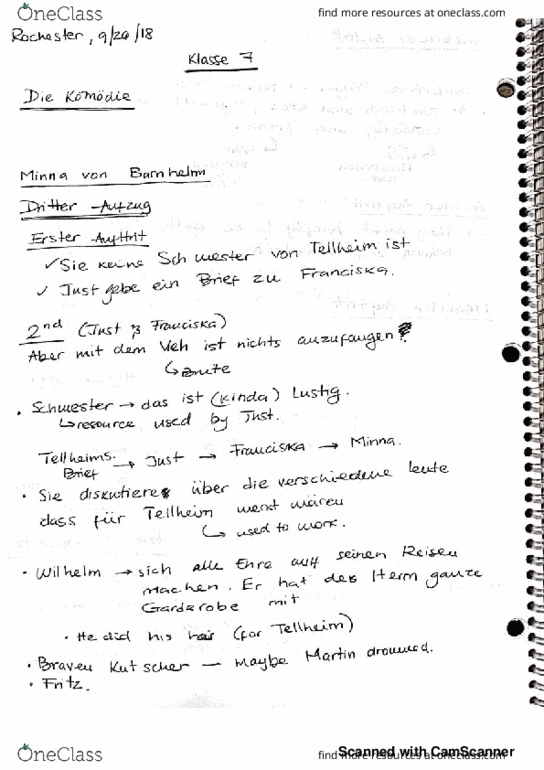 OneClass
find more resources at oneclass.com
Rochester, 9/20/18
Klasse 7
Die Komödie
Minna von Barnhelm
Dritter -Aufzug
Erster -Auftrit
✓ Sie keine Schwester von Tellheim ist
✓ Just gebe ein Brief zu Franciska.
2nd (Just & Franciska)
Aber mit dem Vieh ist nichts anzufangen?
↳ Brute
• Schwester → das ist (kinda) Lustig.
↳ resource used by Just.
Tellheims Brief → Just → Franciska → Minna.
• Sie diskutieren über die verschiedene leute
dass für Tellheim werkt wären
↳ used to work.
• Wilhelm → sich alle Ehre auf seinen Reisen
machen. Er hat des Herrn ganze
Garderobe mit
• He did his hair (for Tellheim)
• Braven Kutscher — Maybe Martin drowned.
• Fritz.
OneClass
find more resources at oneclass.com
Scanned with CamScanner